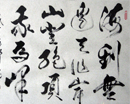 海到無
邊天作岸
山登絕頂
我為峰